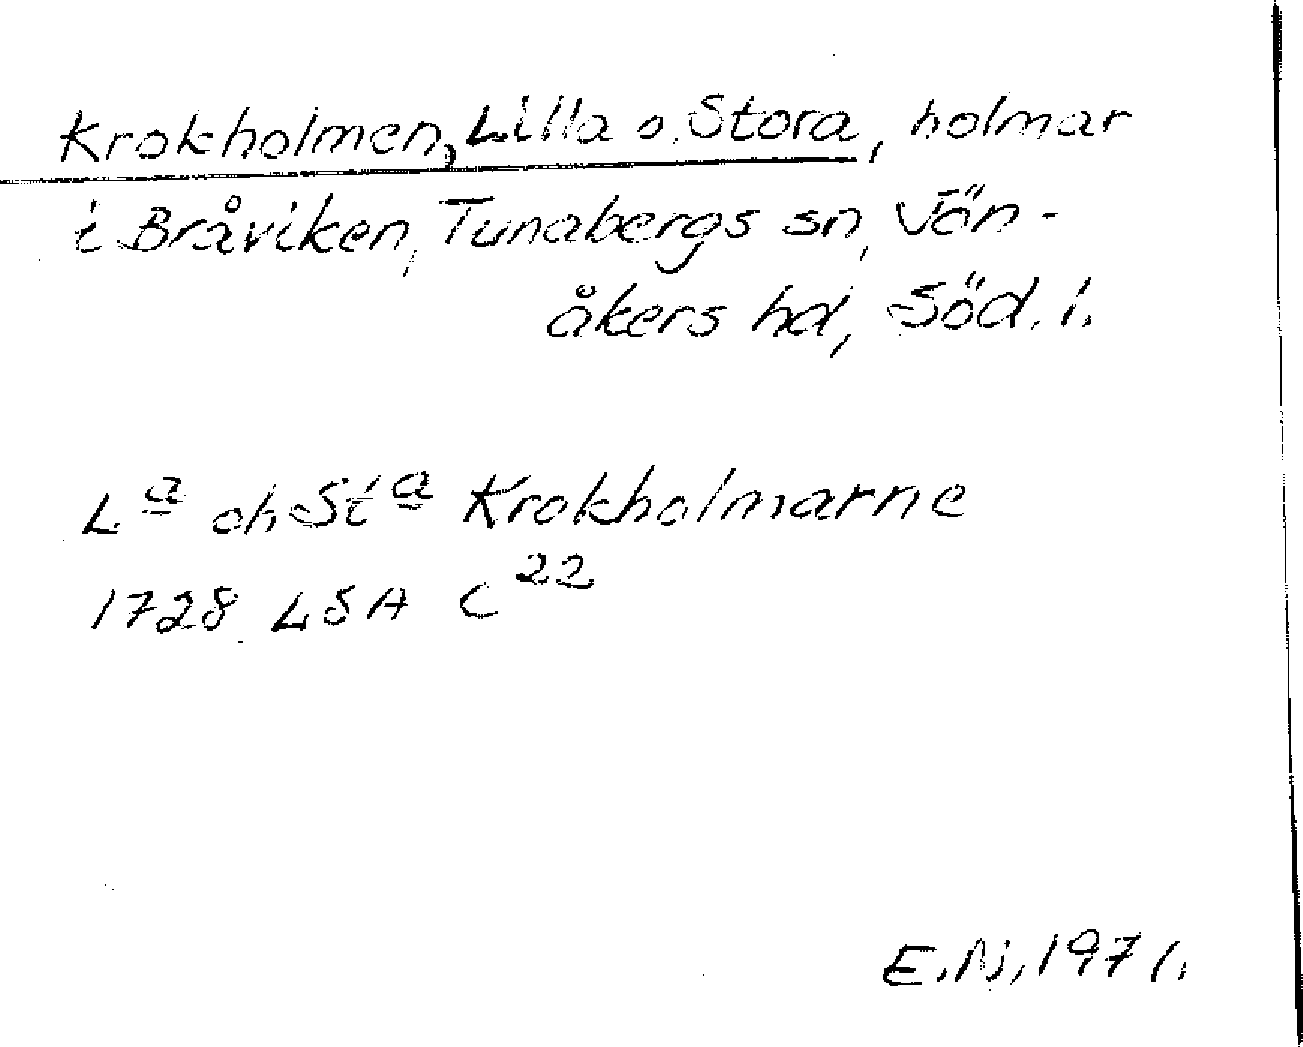 Krokholmen, Lilla o. Stora, holmar
i Bråviken, Tunabergs sn, Jön-
åkers hd, Söd. l.
L<sup>a</sup> oh St<sup>a</sup> Krokholmarne
1728 LSA C<sup>22</sup>
E.N., 1971.